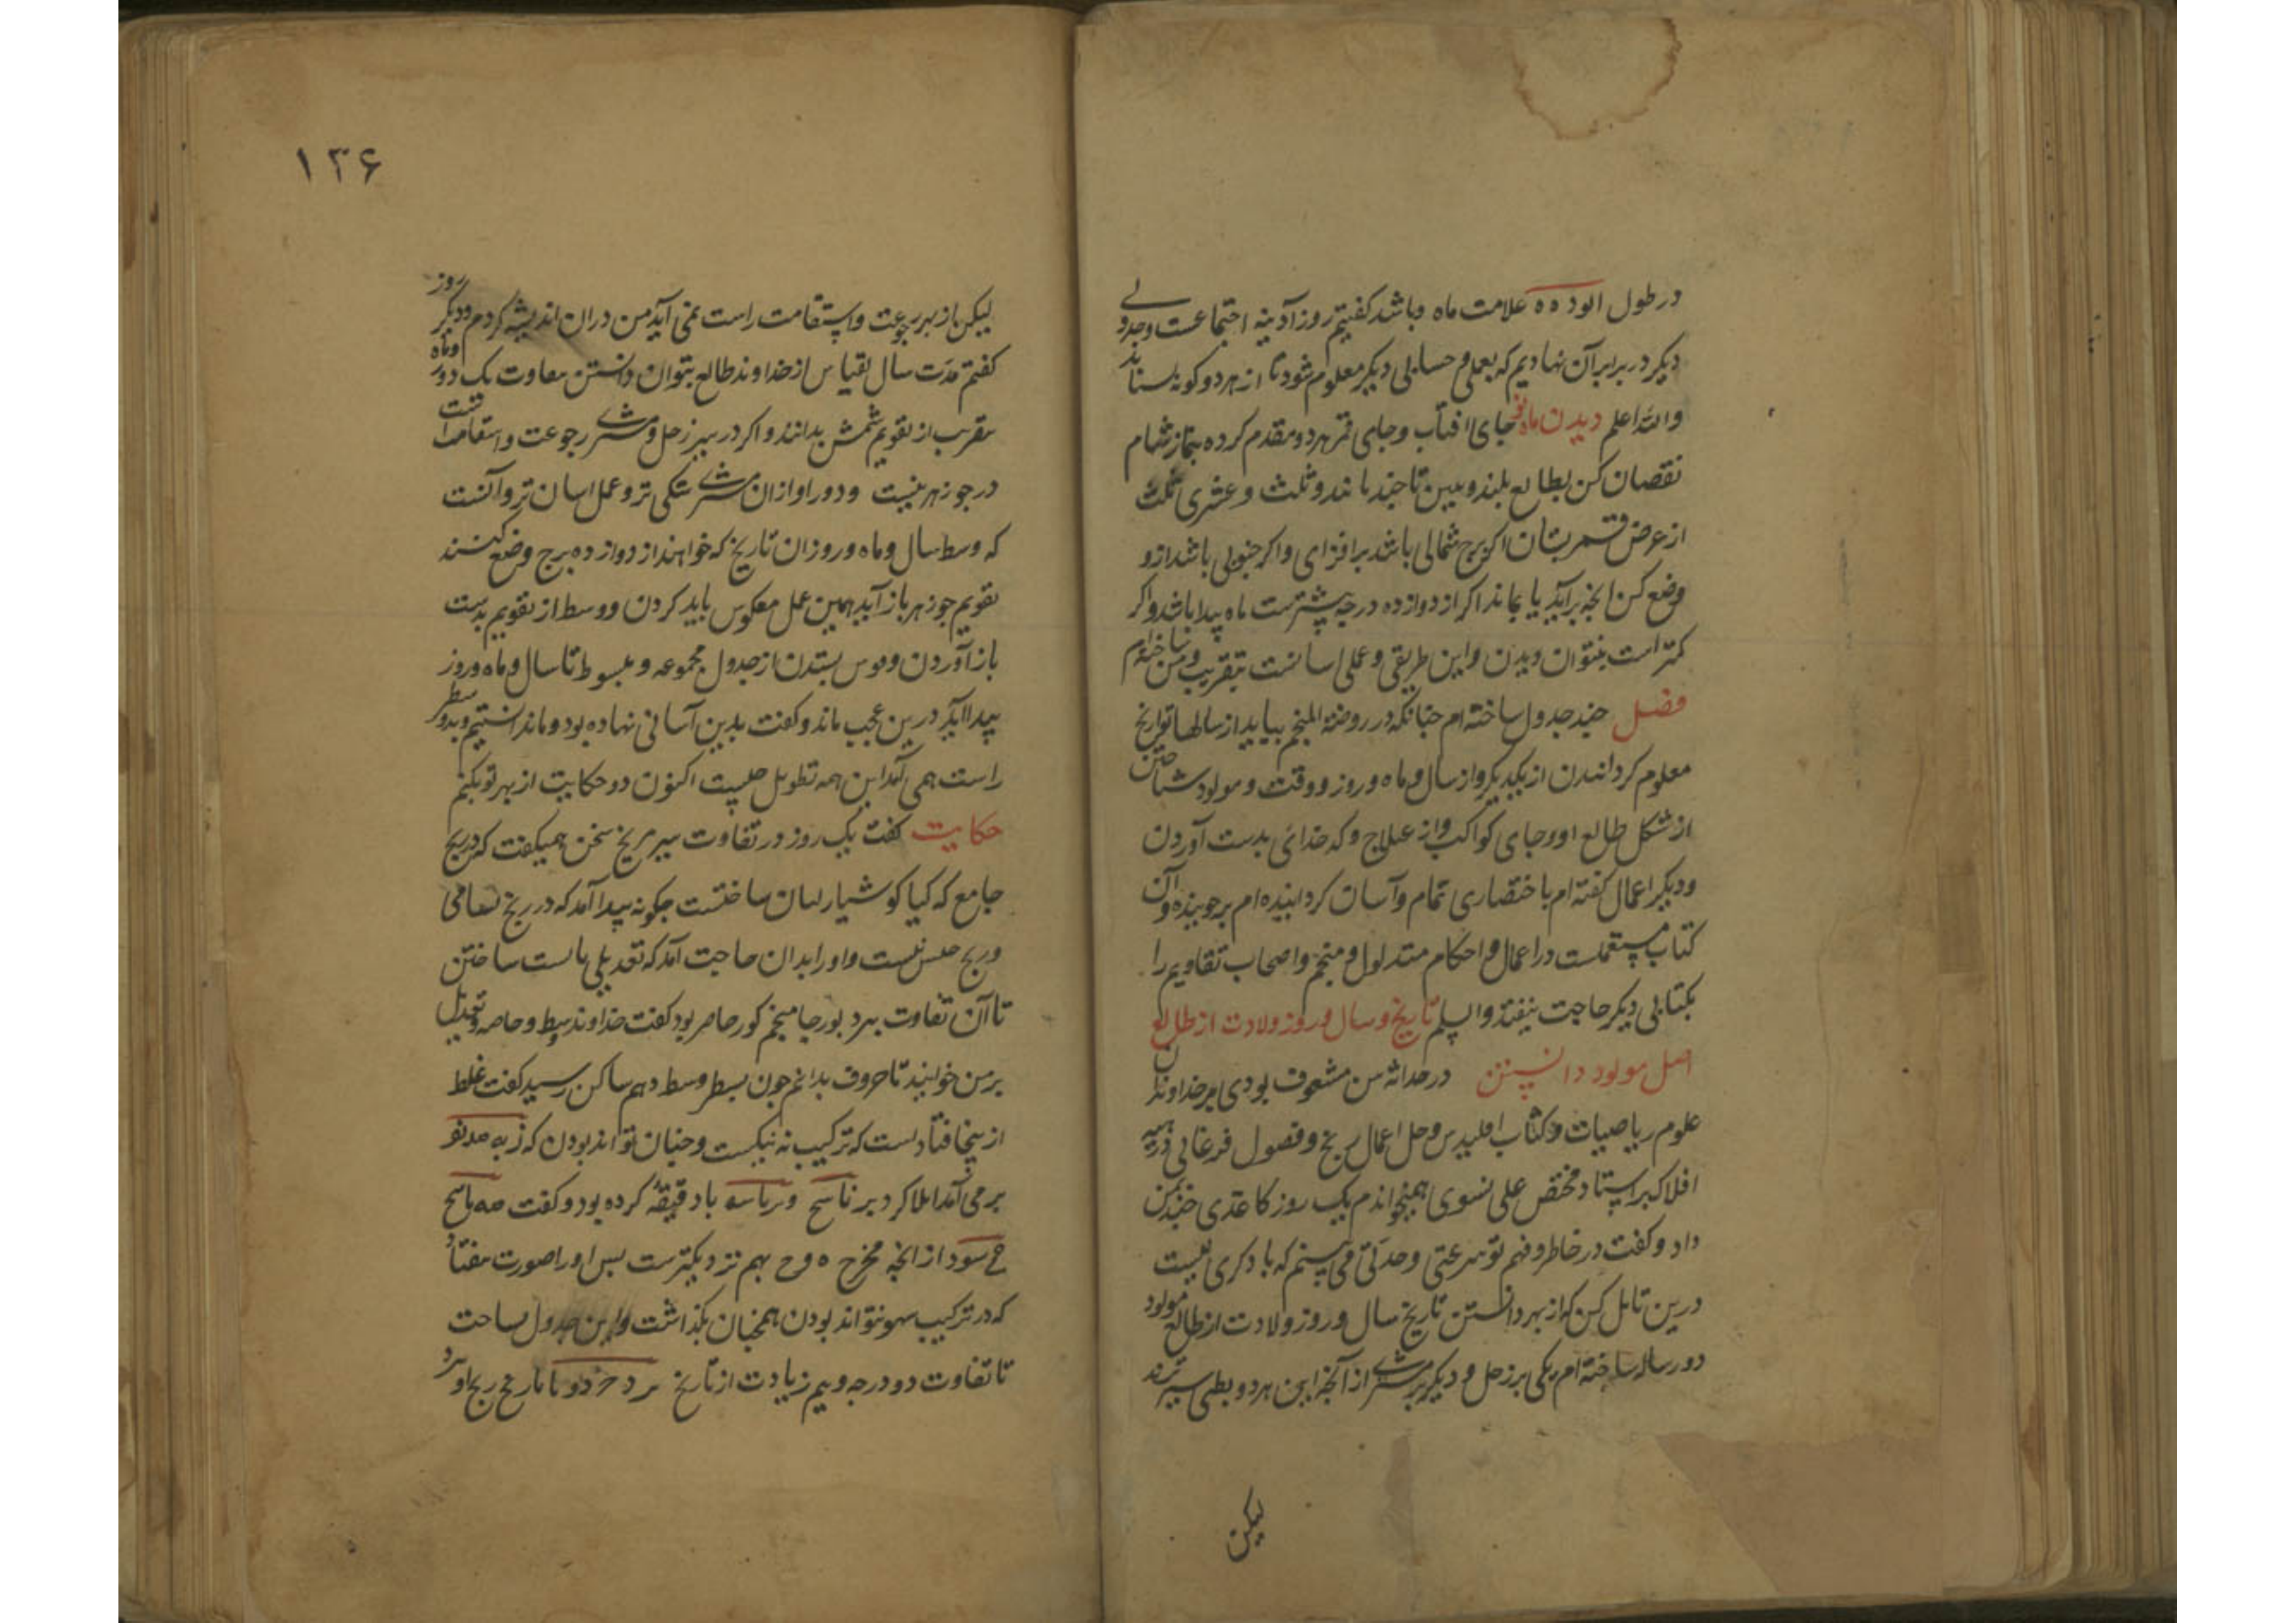 در طول الود ه ه علامت ماه و باشد کفتیم روز آدینه اجتماعست و جدولی
دیکر در برابر آن نهادیم که بعملی و حسابی دیکر معلوم شود تا از هر دو کونه بستانند
والله اعلم دیدن ماه نو جای افتاب و جای قمر هر دو مقدم کرده بنماز شام
نقصان کن بطالع بلند و ببین تا چند ماند و ثلث و عشری ثلث
از عرض قمر بستان اکر برج شمالی باشد برافزای و اکر جنوبی باشد ازو
وضع کن انچه برآید یا بماند اکر از دوازده درجه بیشترست ماه پیدا باشد و اکر
کمتر است بنتوان دیدن و این طریقی و عملی اسانست بتقریب و من ساخته‌ام
فصل چند جدول ساخته ام چنانکه در روضة المنجم بیابد از سالها تواریخ
معلوم کردانیدن از یکدیکر و از سال و ماه و روز و وقت و مولود شناختن
از شکل طالع او و جای کواکب و از هیلاج و کدخدای بدست آوردن
و دیکر اعمال کفته ام باختصاری تمام و آسان کردانیده ام بر جوینده و آن
کتاب مستعملست در اعمال و احکام متداول و منجم و اصحاب تقاویم را
بکتابی دیکر حاجت نیفتد والسلم تاریخ و سال و روز ولادت از طالع
اصل مولود دانستن در حداثه سن مشعوف بودی بر خداوندان
علوم ریاضیات و کتاب اقلیدس و حل اعمال زیج و فصول فرغانی و هیه
افلاک بر استاد مختص علی نسوی همیخواندم یک روز کاغذی چند بمن
داد و کفت در خاطر و فهم تو سرعتی و حدتی می بینم که با دکری نیست
درین تامل کن که از بهر دانستن تاریخ سال و روز ولادت از طالع مولود
دو رساله ساخته ام یکی بر زحل و دیکر بر مشتری از آنچه این هر دو بطی سیر ترند
لیکن
۱۳۶
لیکن از بهر رجوعت و استقامت راست نمی آید من دران اندیشه کردم و دیکر روز
کفتم مدت سال بقیاس از خداوند طالع بتوان دانستن معاوت یک دور و ماه
بتقریب از تقویم شمش بدانند و اکر در سیر زحل و مشتری رجوعت و استقامتست
در جوزهر نیست و دور او ازان مشتری تنکی تر و عمل اسان تر و آنست
که وسط سال و ماه و روز ان تاریخ که خواهند از دوازده برج وضع کنند
تقویم جوزهر باز آید همین عمل معکوس باید کردن و وسط از تقویم بدست
باز آوردن و قوس بستدن از جدول مجموعه و مبسوط تا سال و ماه و روز
پیدا آید درین عجب ماند و کفت بدین آسانی نهاده بود و ما ندانستیم و بدو سطر
راست همی آمد این همه تطویل چیست اکنون دو حکایت از بهر تو بکنم
حکایت کفت یک روز در تفاوت سیر مریخ سخن همیکفت که در زیج
جامع که کیا کوشیار لبان ساختست چکونه پیدا آمد که در زیج بتانی
و زیج حبش نیست و او را بدان حاجت آمد که تعدیلی بایست ساختن
تا آن تفاوت ببرد بورجا منجم کور حاضر بود کفت خداوند وسط و خاصه و تعدیل
بر من خوانید تا حروف بدانم چون بسطر وسط دهم ساکن رسید کفت غلط
از ینجا فتادست که ترکیب نه نیکست و چنان تواند بودن که
بر می آمد املا کرد بر با دقیقهٔ کرده بود و کفت
شود از انچه مخرج ه و ح بهم نزدیکترست بس او را صورت
که در ترکیب سهو نتواند بودن همچنان بکذاشت و این جدول بساخت
تا تفاوت دو درجه و نیم زیادت از تاریخ تا تاریخ زیج او